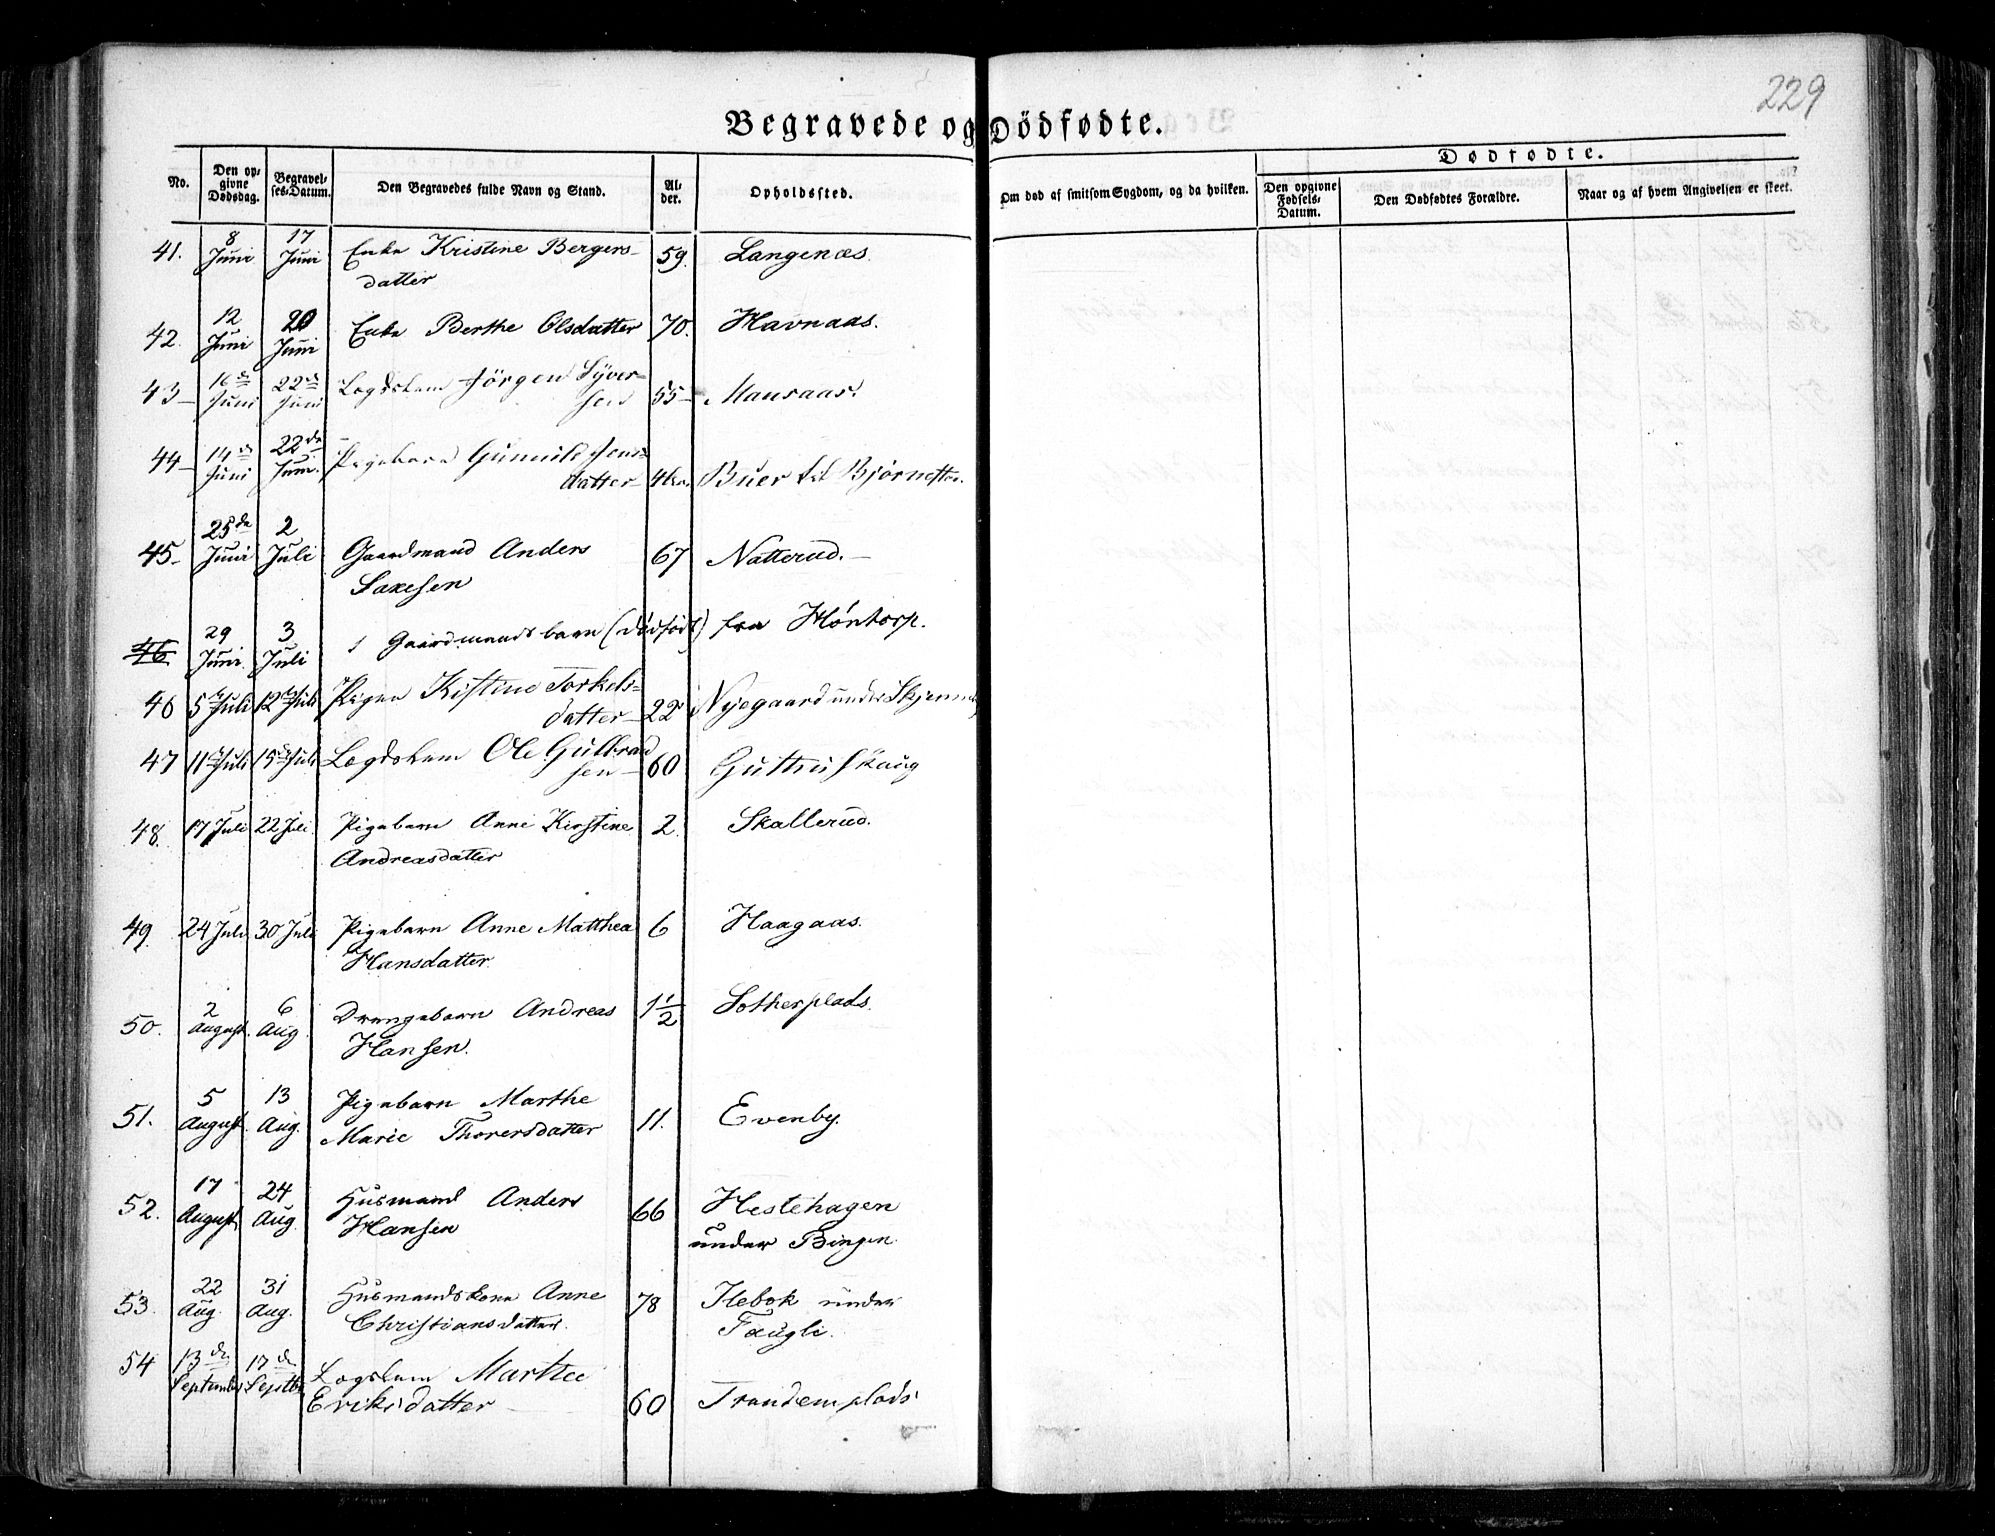 229
Begravede og Dödfødte.
Dødfødte.
No.
Den opgivne Dødsdag.
Begravelses-Datum.
Den Begravedes fulde Navn og Stand.
Alder.
Opholdssted.
Om død af smitsom Sygdom, og da hvilken.
Den opgivne Fødsels-Datum.
Den Dødfødtes Forældre.
Naar og af hvem Angivelsen er skeet.
41. 8 Juni 17 Juni Enke Kristine Bergers- 59. Langenæs.
datter
42. 12 Juni 20 Juni Enke Berthe Olsdatter 70. Havnaas.
43 16de Juni 22de Juni Lægdslem Jörgen Syver- 55 Mausaas.
sen
44 14de Juni 22de Juni. Pigebarn Gunnild Jens-
datter Buer
45 25de Juni 2 Juli Gaardmand Anders 67 Natterud.
Saxesen
46 29 Juni 3 Juli 1 Gaardmands barn (dödfödt) fra Höntorp.
46 5te Juli 12te Juli Pigen Kistine Torkels-
datter 22 Nyegaard under
47 11te Juli 15de Juli Lægdslem Ole Gulbrand
sen 60
48. 17 Juli 22 Juli. Pigebarn Anne Kirstine 2. Skallerud.
Andreasdatter
49. 24 Juli 30 Juli Pigebarn Anne Matthea 6 Haagaas.
Hansdatter.
50. 2 August. 6 Aug. Drengebarn Andreas 1 1/2 Sotherplads.
Hansen.
51. 5 August. 13 Aug. Pigebarn Marthe 11. Evenby.
Marie Thorersdatter
52. 17 August. 24 Aug. Husmand Anders 66 Hestehagen
Hansen under Bingen.
53. 22 Aug. 31 Aug. Husmandskone Anne 78 Ilebek under
Christiansdatter. Faugli.
54 13de September 17de Septbr Lægslem Marthe
Eriksdatter 60 Trandemplads